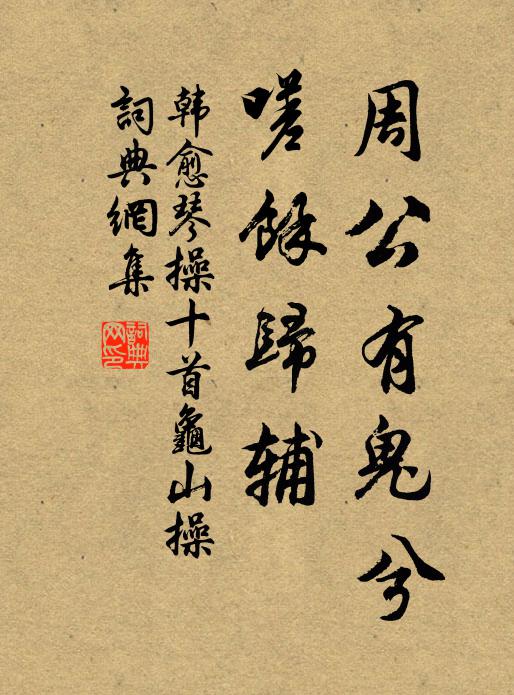 周公有鬼兮
嗟餘歸輔
韩愈琴操十首龜山操
詞典網集
詞典网印